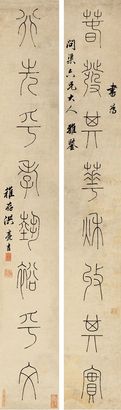 書為
問渠六兄大人 雅鑒
春發其華秋收其實
行先乎孝藝裕乎文
稚存洪亮吉